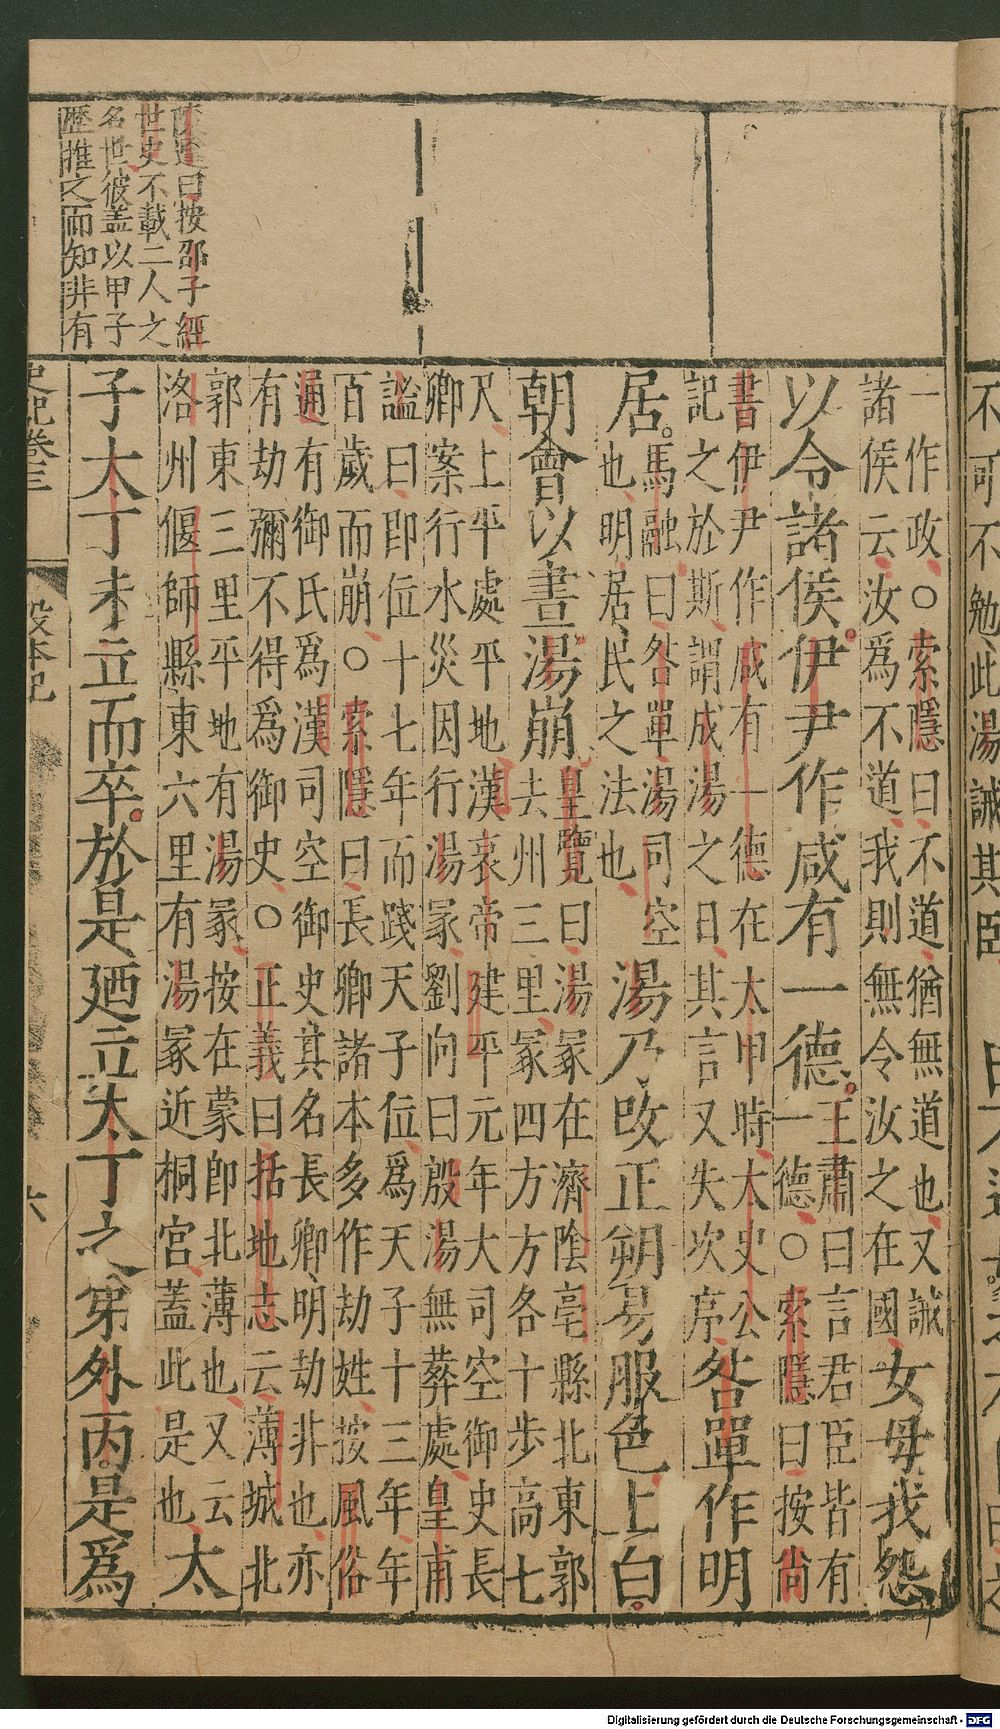 不可不勉此湯誡其臣
一作政○索隱曰不道猶無道也又誡
諸侯云汝為不道我則無令汝之在國
女毋我怨
以令諸侯伊尹作咸有一德
王肅曰言君臣皆有
一德○索隱曰按尚
書伊尹作咸有一德在太甲時太史公
記之於斯謂成湯之日其言又失次序
咎單作明
居
馬融曰咎單湯司空
也明居民之法也
湯乃改正朔易服色上白
朝會以晝湯崩
皇覽曰湯冢在濟陰亳縣北東郭
去州三里冢四方方各十步高七
尺上平處平地漢哀帝建平元年大司空御史長
卿案行水災因行湯冢劉向曰殷湯無葬處皇甫
謚曰即位十七年而踐天子位為天子十三年年
百歲而崩○索隱曰長卿諸本多作劫姓按風俗
通有御氏為漢司空御史其名長卿明劫非也亦
有劫彌不得為御史○正義曰括地志云薄城北
郭東三里平地有湯冢按在蒙即北薄也又云
洛州偃師縣東六里有湯冢近桐宮蓋此是也
太
子太丁未立而卒於是廼立太丁之弟外丙是為
曰按邵子經
世史不載二人之
名世彼蓋以甲子
歷推之而知非有
史記卷三
殷本紀
六
Digitalisierung gefördert durch die Deutsche Forschungsgemeinschaft - DFG